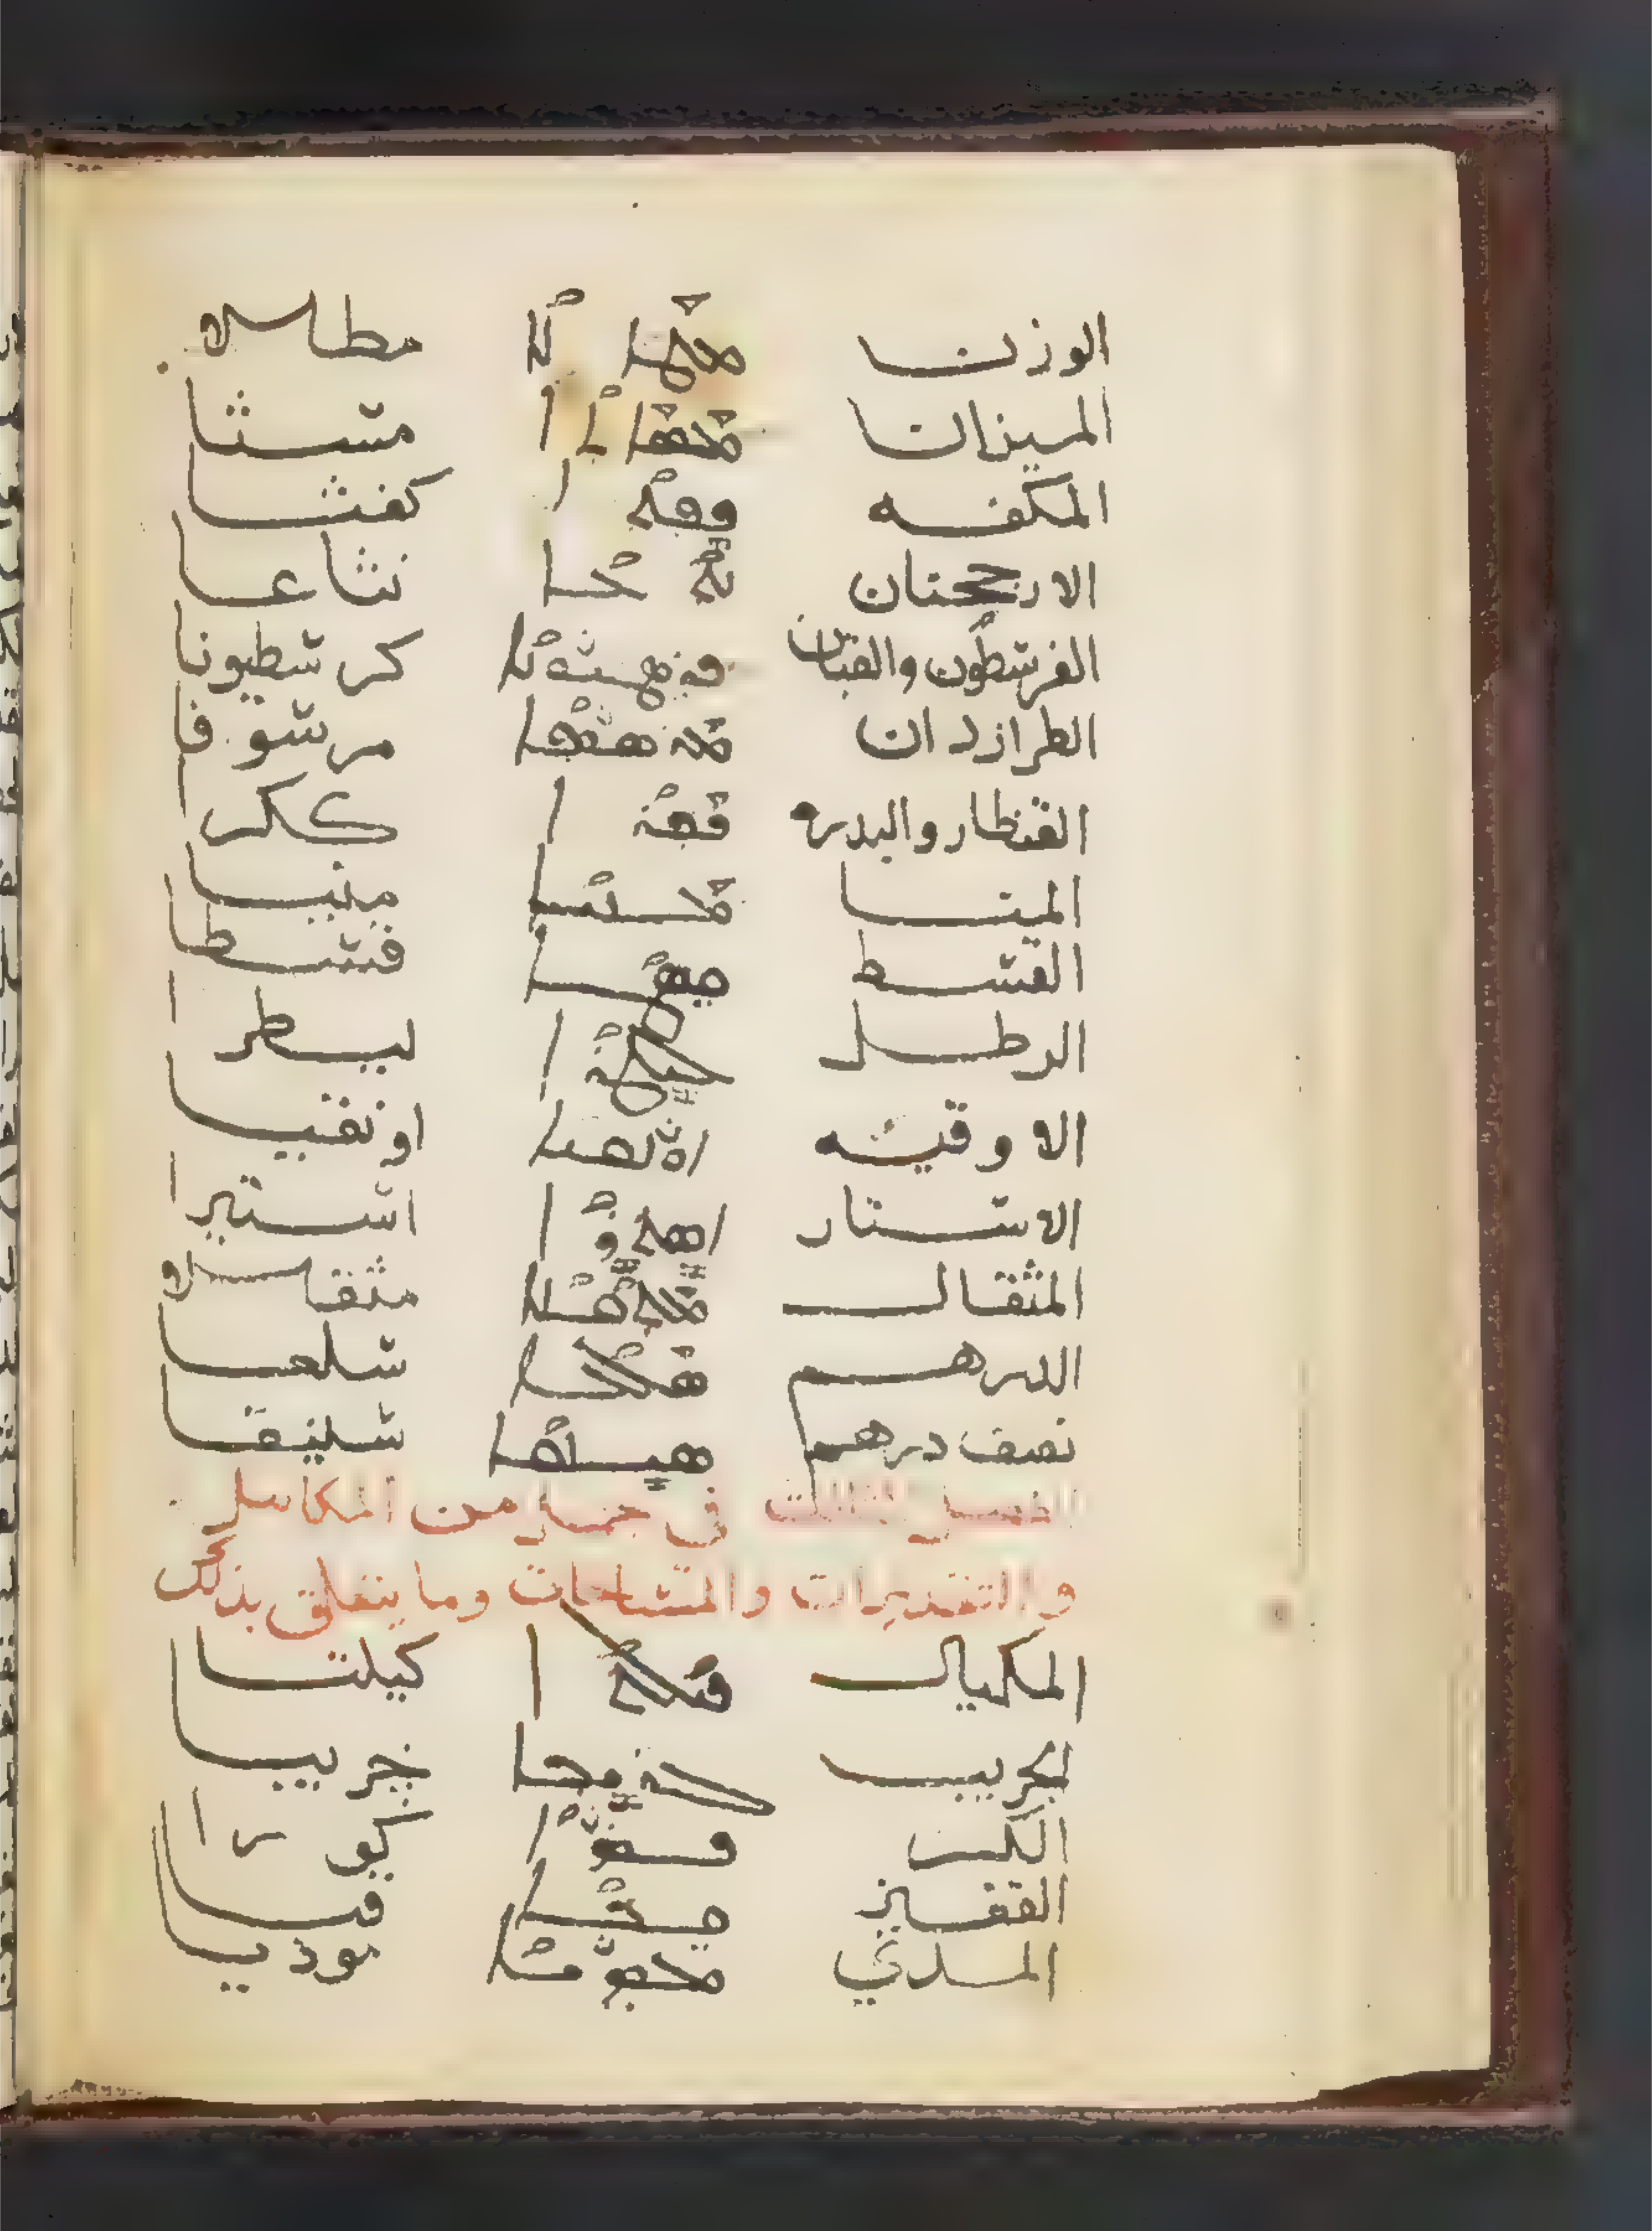 الوزن ܡܛܠܐ مطلا
الميزان ܡܣܐܬܐ مسثا
الكفه ܟܦܬܐ كفثا
الارجحنان ܢܬܥܐ نثاعا
القرسطون والقبان ܟܪܣܛܝܘܢܐ كرسطيونا
الطرازدان
القنطار والبدره ܟܟܪܐ ككرا
المنا ܡܢܝܐ منيا
القسط ܩܣܛܐ قسطا
الرطل ܠܝܛܪܐ ليطرا
الاوقيه ܐܘܢܩܝܐ اونقيا
الاستار ܐܣܬܝܪܐ استيرا
المثقال ܡܬܩܠܐ مثقلا
الدرهم ܣܠܥܐ سلعا
نصف درهم
الفصل الثالث في جمل من المكاييل
والتقديرات والمساحات وما يتعلق بذلك
المكيال ܟܝܠܬܐ كيلتا
الجريب ܓܪܝܒܐ جريبا
الكر ܟܘܪܐ كورا
القفيز ܩܒܐ قبا
المدي ܡܘܕܝܐ موديا